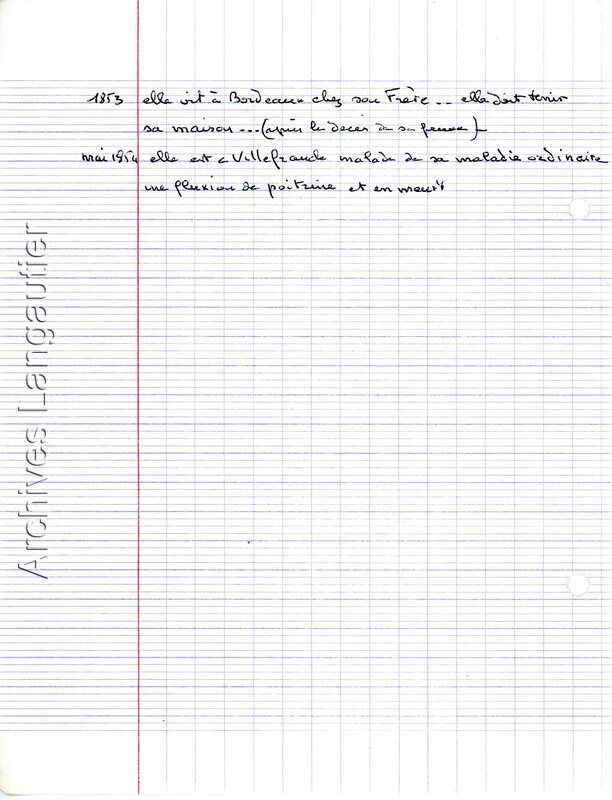 1853 elle vit à Bordeaux chez son Frère... elle doit tenir
sa maison... (après le décès de sa femme)
mai 1854 elle est à Villefranche malade de sa maladie ordinaire
une fluxion de poitrine et en meurt
Archives Langautier